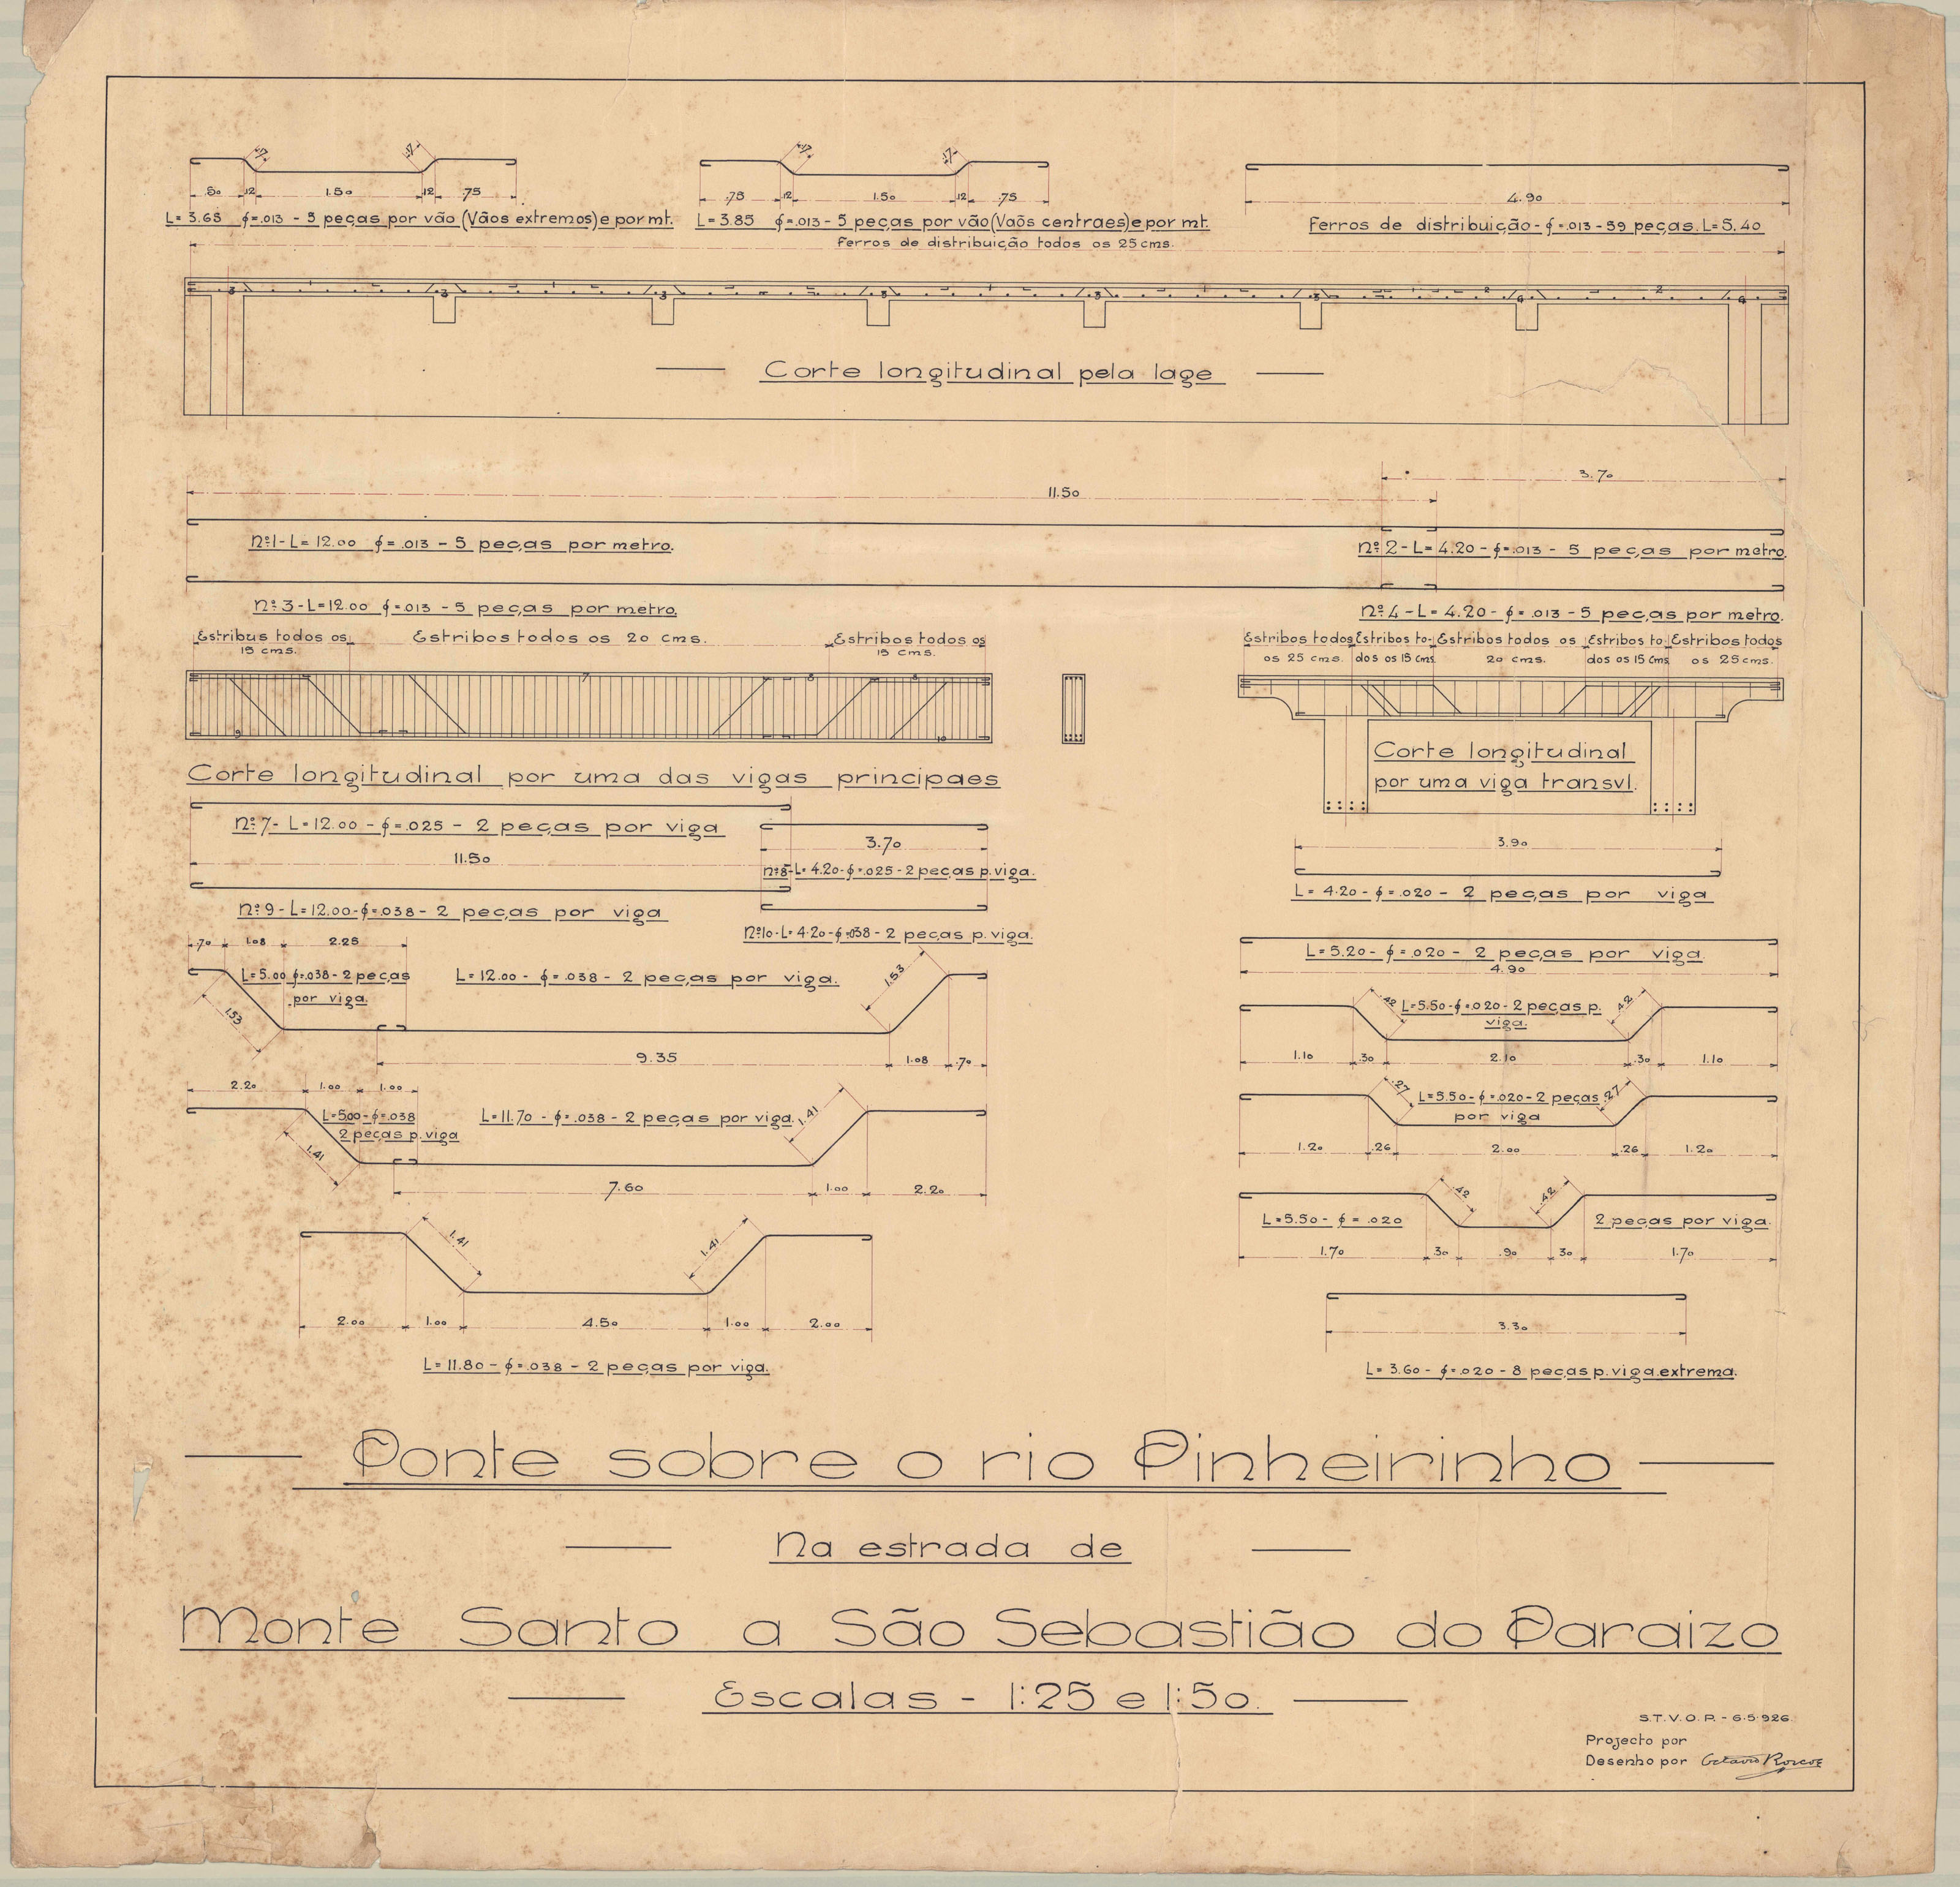 .17 .17
.50 .12 1.50 .12 .75
L= 3.65 ϕ=.013 - 5 peças por vão (Vãos extremos) e por mt.
.17 .17
.75 .12 1.50 .12 .75
L= 3.85 ϕ=.013 - 5 peças por vão (Vãos centraes) e por mt.
4.90
Ferros de distribuição - ϕ=.013 - 59 peças. L= 5.40
Ferros de distribuição todos os 25 cms.
3 3 3 3 3 3 2 4 2 4
Corte longitudinal pela lage
11.50
3.70
nº 1 - L= 12.00 ϕ= .013 - 5 peças por metro.
nº 2 - L= 4.20 - ϕ=.013 - 5 peças por metro
nº 3 - L= 12.00 ϕ=.013 - 5 peças por metro.
nº 4 - L= 4.20 - ϕ= .013 - 5 peças por metro.
Estribus todos os
15 cms.
Estribos todos os 20 cms.
Estribos todos os
15 cms.
7 8 8
9 10
Corte longitudinal por uma das vigas principaes
Estribos todos
os 25 cms.
Estribos to-
dos os 15 cms
Estribos todos os
20 cms.
Estribos to-
dos os 15 cms
Estribos todos
os 25 cms.
Corte longitudinal
por uma viga transvl.
nº 7 - L= 12.00 - ϕ=.025 - 2 peças por viga
11.50
3.70
nº 8 - L= 4.20 - ϕ=.025 - 2 peças p. viga.
nº 9 - L= 12.00 - ϕ=.038 - 2 peças por viga
nº 10 - L= 4.20 - ϕ=.038 - 2 peças p. viga.
.70 1.08 2.25
L= 5.00 ϕ=.038 - 2 peças
por viga.
L= 12.00 - ϕ= .038 - 2 peças por viga.
1.53
1.53
9.35 1.08 .70
2.20 1.00 1.00
L= 5.00 - ϕ=.038
2 peças p. viga
L= 11.70 - ϕ= .038 - 2 peças por viga.
1.41
1.41
7.60 1.00 2.20
1.41 1.41
2.00 1.00 4.50 1.00 2.00
L= 11.80 - ϕ=.038 - 2 peças por viga.
3.90
L= 4.20 - ϕ= .020 - 2 peças por viga
L= 5.20 - ϕ= .020 - 2 peças por viga.
4.90
.42 .42
L= 5.50 - ϕ=.020 - 2 peças p.
viga.
1.10 .30 2.10 .30 1.10
.27 .27
L= 5.50 - ϕ=.020 - 2 peças
por viga
1.20 .26 2.00 .26 1.20
.42 .42
L= 5.50 - ϕ= .020 2 peças por viga.
1.70 30 .90 30 1.70
3.30
L= 3.60 - ϕ=.020 - 8 peças p. viga extrema.
Ponte sobre o rio Pinheirinho
Na estrada de
Monte Santo a São Sebastião do Paraizo
Escalas - 1:25 e 1:50.
S.T.V.O.P. - 6.5.926.
Projecto por
Desenho por Octavio Roscoe